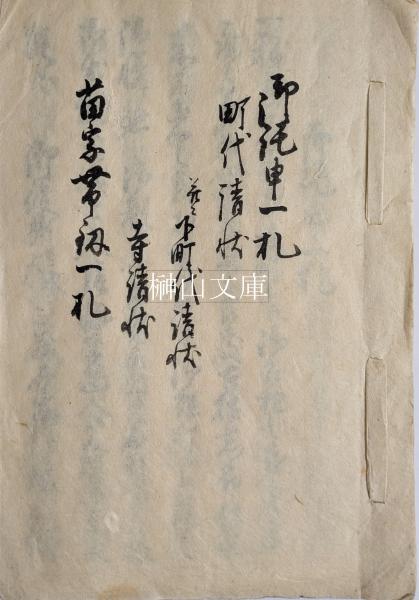 御詫申一札
町代請状
并ニ下町代請状
寺請状
苗字帯刀一札
榊山文庫